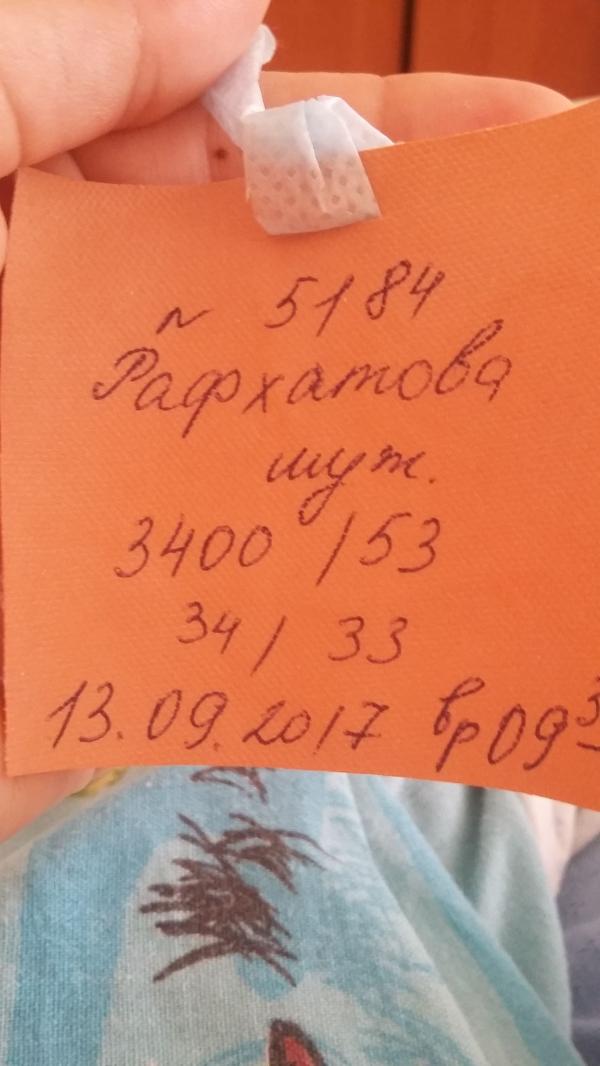 № 5184
Рафхатова
муж.
3400 /53
34/ 33
13.09.2017 вр 09